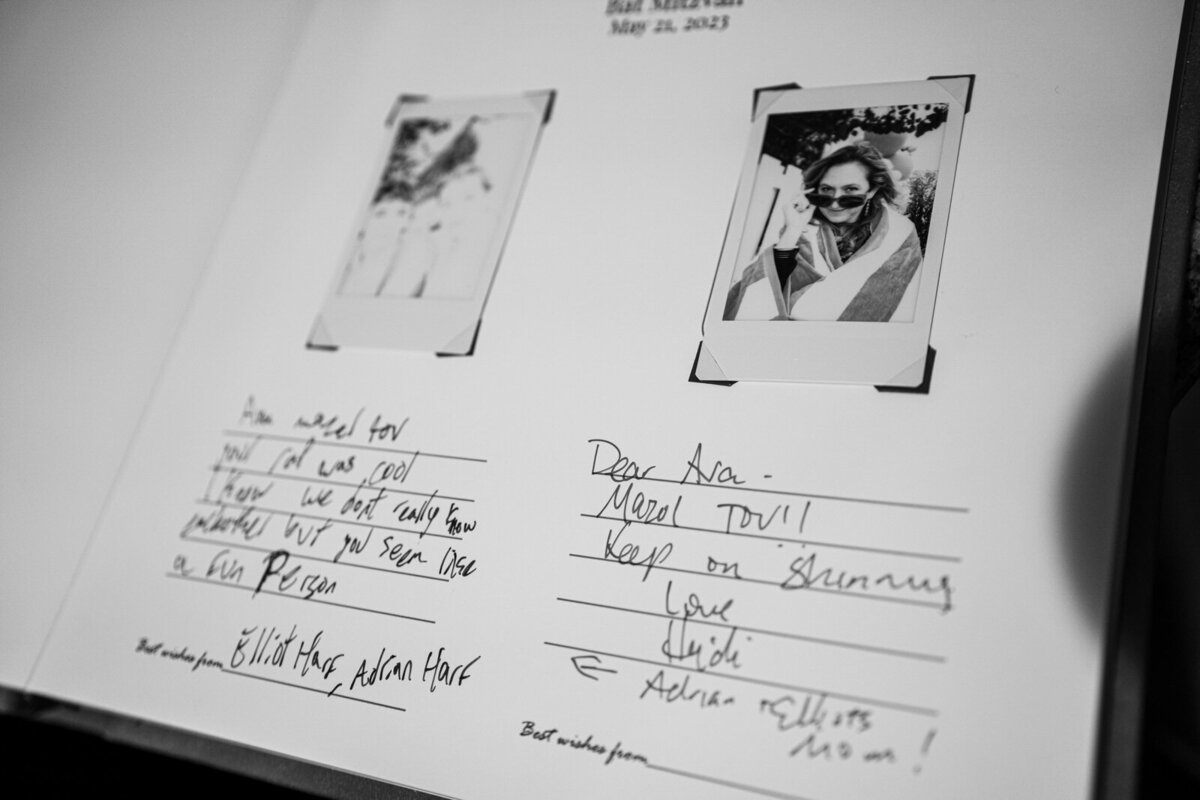 Bat Mitzvah
May 21, 2023
Ava mazel tov
your rat was cool
I know we dont really know
eachother but you seem like
a fun Person
Best wishes from Elliot Harf, Adrian Harf
Dear Ava -
Mazol Tov!!
Keep on Shinning
Love
Heidi
← Adrian + Elliots
Mom!
Best wishes from